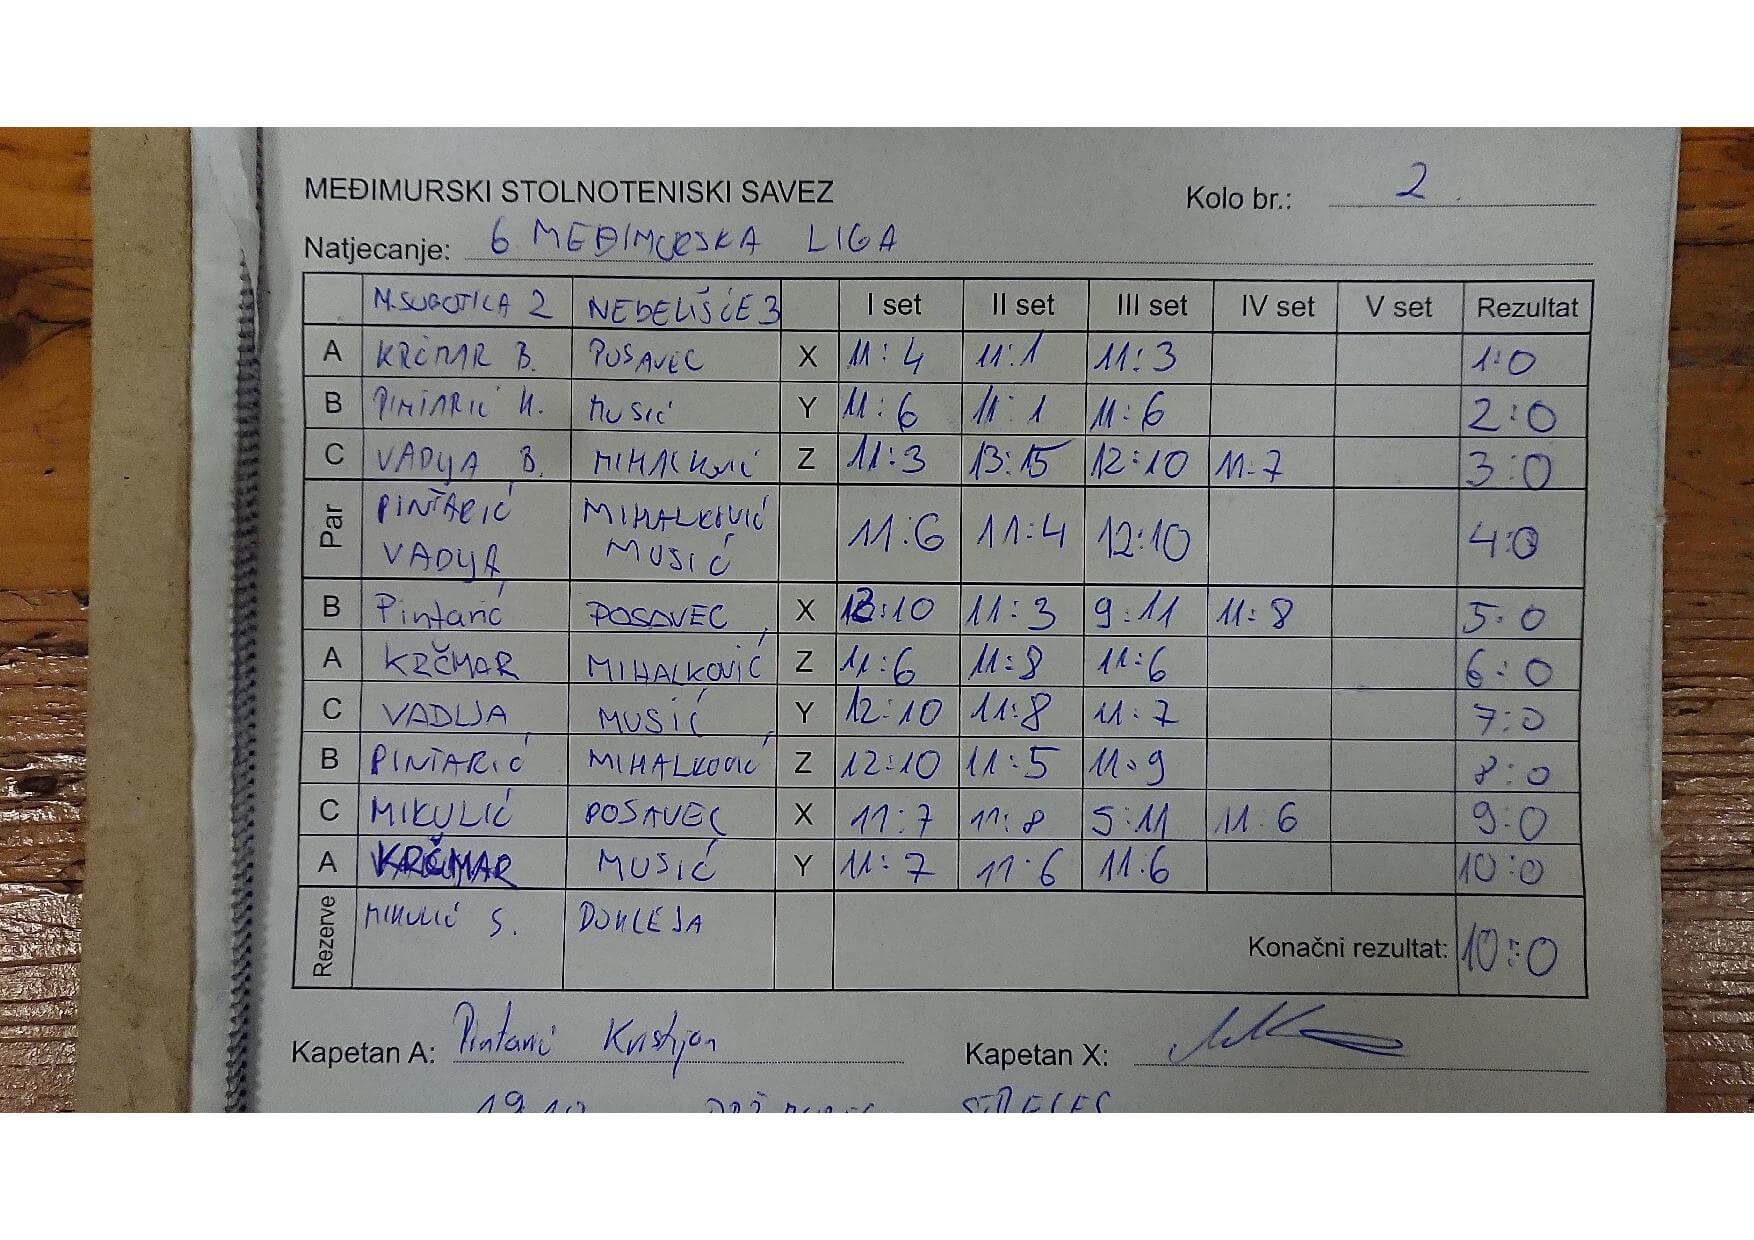 MEĐIMURSKI STOLNOTENISKI SAVEZ Kolo br.: 2.
Natjecanje: 6 MEĐIMURSKA LIGA
M.SUBOTICA 2 NEDELIŠĆE 3 I set II set III set IV set V set Rezultat
A KRČMAR B. POSAVEC X 11:4 11:1 11:3 1:0
B PINTARIĆ K. MUSIĆ Y 11:6 11:1 11:6 2:0
C VADLJA B. MIHALKOVIĆ Z 11:3 13:15 12:10 11:7 3:0
Par PINTARIĆ MIHALKOVIĆ 11:6 11:4 12:10 4:0
VADLJA MUSIĆ
B Pintarić POSAVEC X 12:10 11:3 9:11 11:8 5:0
A KRČMAR MIHALKOVIĆ Z 11:6 11:8 11:6 6:0
C VADLJA MUSIĆ Y 12:10 11:8 11:7 7:0
B PINTARIĆ MIHALKOVIĆ Z 12:10 11:5 11:9 8:0
C MIKULIĆ POSAVEC X 11:7 11:8 5:11 11:6 9:0
A KRČMAR MUSIĆ Y 11:7 11:6 11:6 10:0
Rezerve MIKULIĆ S. DOKLEJA Konačni rezultat: 10:0
Kapetan A: Pintarić Kristjan Kapetan X: